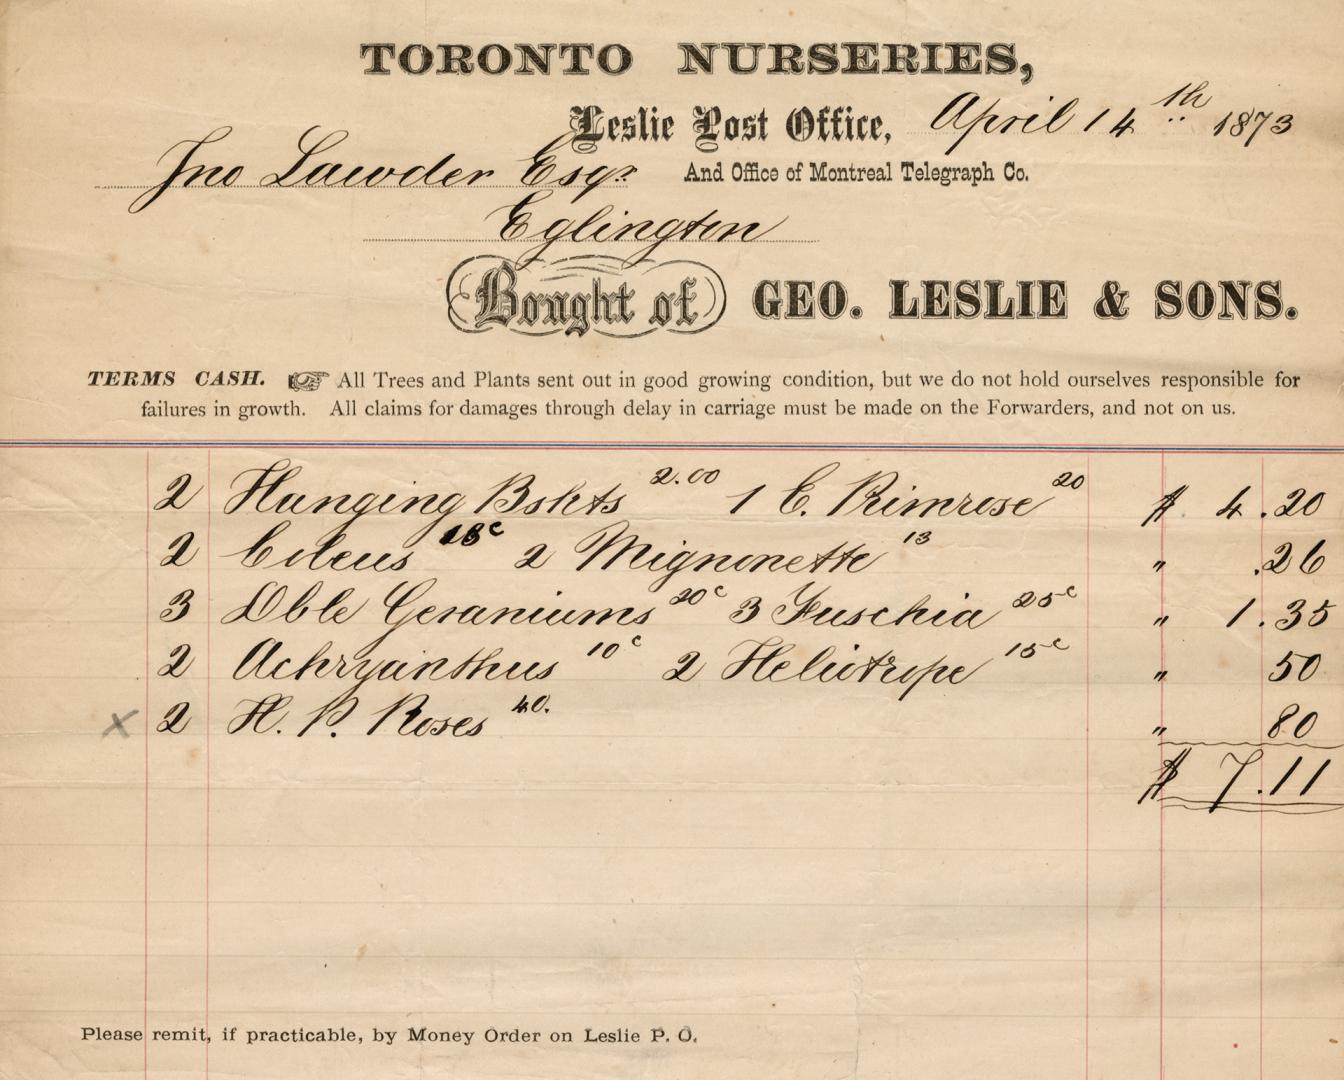 TORONTO NURSERIES,
Leslie Post Office, April 14th 1873
Jno Lawder Esqr. And Office of Montreal Telegraph Co.
Eglington
Bought of GEO. LESLIE & SONS.
TERMS CASH. ☞ All Trees and Plants sent out in good growing condition, but we do not hold ourselves responsible for
failures in growth. All claims for damages through delay in carriage must be made on the Forwarders, and not on us.
2 Hanging Bskts 2.00 1 C. Primrose 20 $ 4.20
2 Coleus 2 Mignonette 13 " .26
3 Dble Geraniums 20c 3 Fuschia 25c " 1.35
2 Achryanthus 10c 2 Heliotrope 15c " 50
x 2 H. P. Roses 40. " 80
$ 7.11
Please remit, if practicable, by Money Order on Leslie P. O.